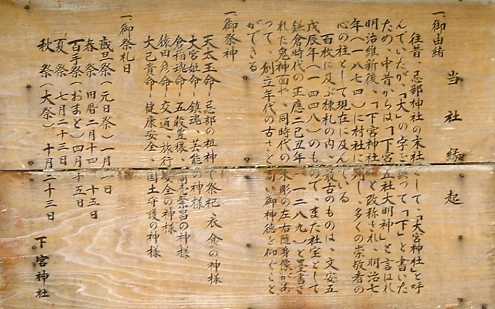 当社縁起
一、御由緒
往昔、忌部神社の末社として、「大宮神社」と呼
んでいたが、「大」の字を誤って「下」と書いた
ため、中昔からは「下宮五社大明神」と言はれ
明治維新後、「下宮神社」と改称され、明治七
年(一八七四)に村社に列し、多くの崇敬者の
心の柱として現在に及んでいる
百枚に及ぶ棟札の内、最古のものは、文安五
戊辰年(一四四八)のもので、また社宝として
鎌倉時代の正應二己丑年(一二八九)と墨書さ
れた鬼神面や、同時代の木彫の左右随身像があ
って、創立年代の古さと高い御神徳を仰ぐこと
ができる
一、御祭神
天太玉命―忌部の祖神で祭祀、衣食の神様
大宮姫命―鎮魂、芸能の神様
倉稲魂命―五穀豊穣、商売繁昌の神様
猿田彦命―交通、旅行安全の神様
大己貴命―健康安全、国土守護の神様
一、御祭礼日
歳旦祭(元日祭)一月一日
春祭 旧暦一月十四、十五日
百手祭(おまと)四月十五日
夏祭 七月二十三日
秋祭(大祭)十月二十三日
下宮神社